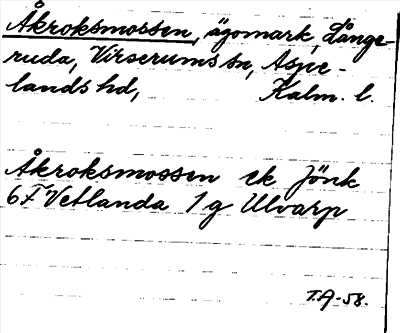 Åkroksmossen, ägomark, Långe-
ruda, Virserums sn, Aspe-
lands hd, Kalm. l.
Åkroksmossen ek Jönk
6F Vetlanda 1g Ulvarp
T.A-58.